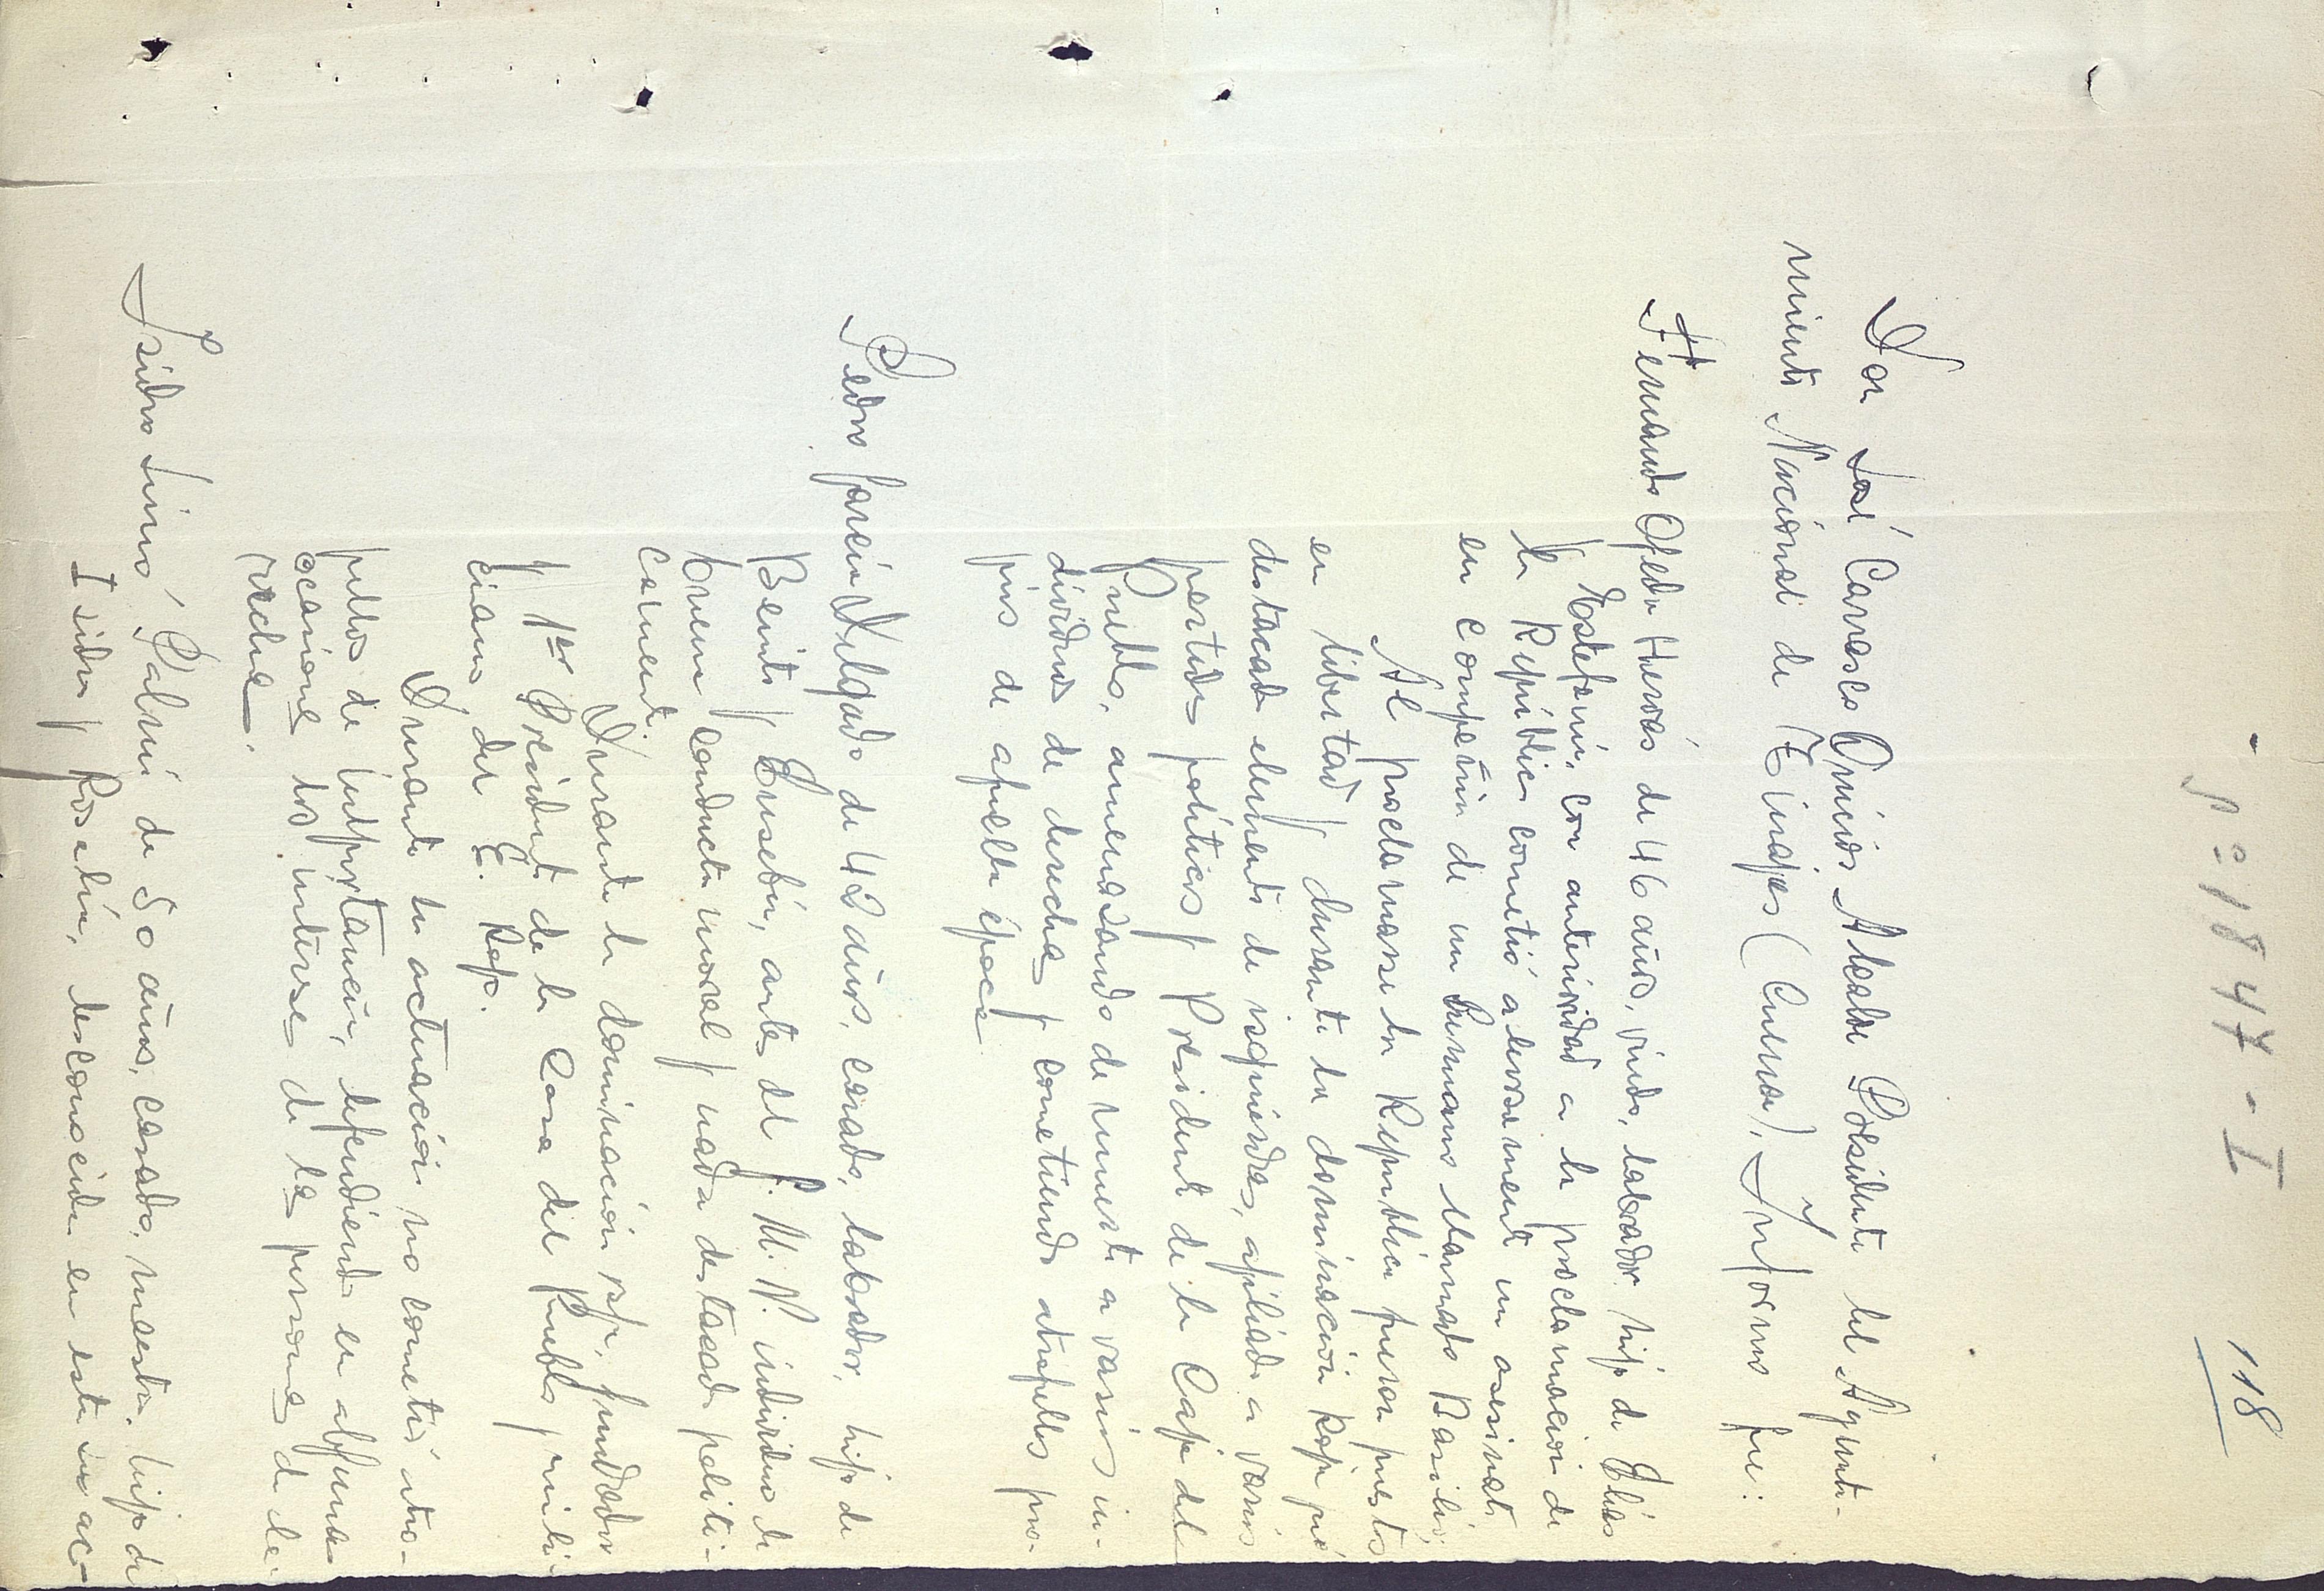 118
P-º 1847-I
Don José Carrasco Quicios Alcalde Presidente del Ayunta-
miento Nacional de Tinajas (Cuenca), Informo que:
Fernando Ojeda Huerás de 46 años, viudo, labrador hijo de Elías
y Estefanía, con anterioridad a la proclamación de
la República cometió alevosamente un asesinato
en compañía de un hermano llamado Basilio;
Al proclamarse la República fueron puestos
en libertad y durante la dominación Roja fué
destacado elemento de izquierdas, afiliado a varios
partidos políticos y Presidente de la Casa del
Pueblo, amenazando de muerte a varios in-
dividuos de derechas y cometiendo atropellos pro-
pios de aquella época.
Pedro García Delgado de 42 años, casado, labrador, hijo de
Benito y Eusebia, antes del G. M. N. individuo de
buena conducta moral y nada destacado políti-
camente.
Durante la dominación roja, fundador
y 1er Presidente de la Casa del Pueblo y mili-
ciano del E. Rojo.
Durante su actuación no cometió atro-
pellos de importancia, defendiendo en algunas
ocasiones los intereses de las personas de de-
rechas.
Isidro Palmí de 50 años, casado, maestro, hijo de
Isidro y Rosalía, desconocida en esta su ac-